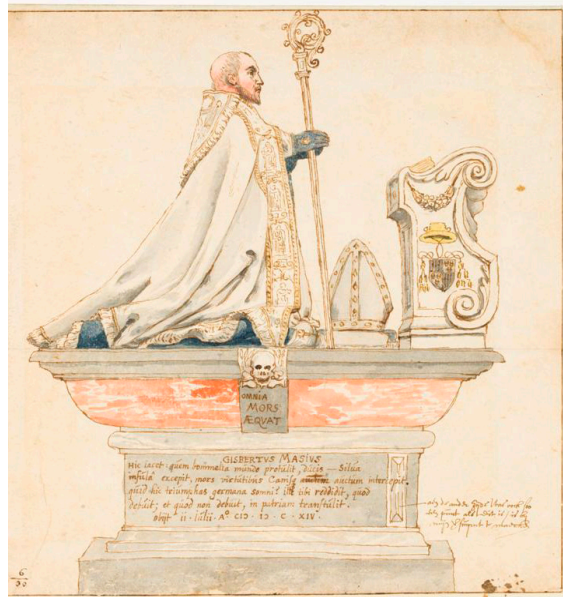 OMNIA
MORS
ÆQVAT
GISBERTVS MASIVS
Hic iacet quem bommalia mundo protulit, Ducis — Silva
infula excepit, mors virtutibus auctum intercepit.
quid hic triumphas germana somni? tibi reddidit, quod
debuit; et quod non debuit, in patriam transtulit.
obijt ii · Iulii · A° CIↃ · IↃ · C · XIV ·
6
30